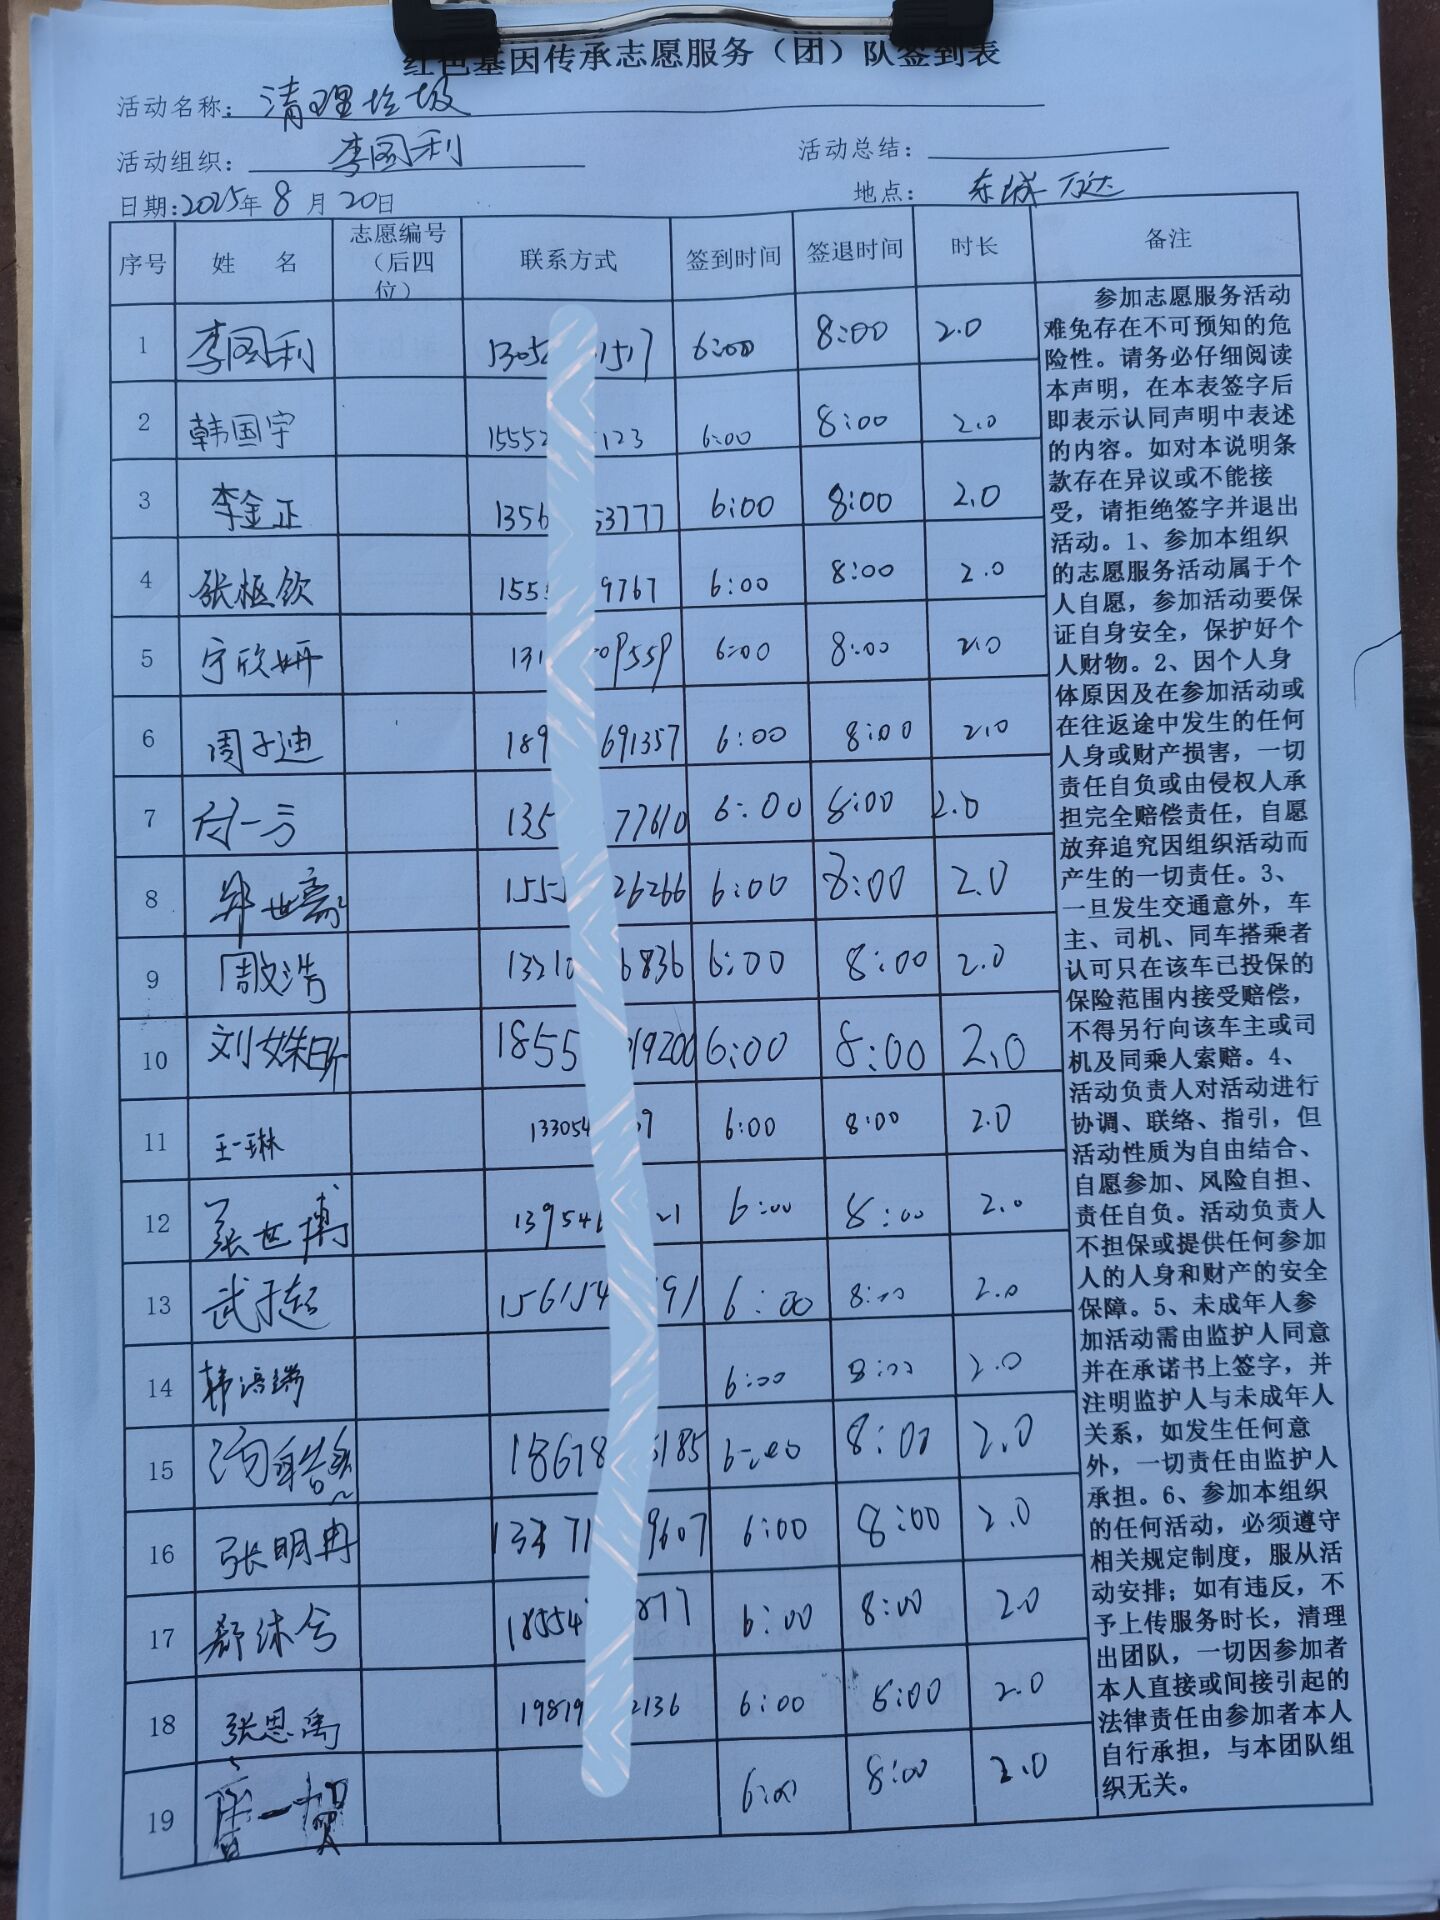 红色基因传承志愿服务（团）队签到表
活动名称：清理垃圾
活动组织：李国利 活动总结：
日期：2025年8月20日 地点：东城万达
序号 姓 名 志愿编号（后四位） 联系方式 签到时间 签退时间 时长 备注
1 李国利 1305 1517 6:00 8:00 2.0
2 韩国宇 15552 123 6:00 8:00 2.0
3 李金正 1356 53777 6:00 8:00 2.0
4 张恒钦 155 9767 6:00 8:00 2.0
5 宁欣妍 131 09559 6:00 8:00 2.0
6 周子迪 189 691357 6:00 8:00 2.0
7 付一方 135 77610 6:00 8:00 2.0
8 郑世豪 155 26266 6:00 8:00 2.0
9 周文浩 13210 6836 6:00 8:00 2.0
10 刘姝昕 1855 19200 6:00 8:00 2.0
11 王一琳 133054 9 6:00 8:00 2.0
12 张世博 13954 21 6:00 8:00 2.0
13 武子超 156154 91 6:00 8:00 2.0
14 韩 6:00 8:00 2.0
15 18678 5185 6:00 8:00 2.0
16 张明冉 13371 9607 6:00 8:00 2.0
17 舒沐兮 18554 877 6:00 8:00 2.0
18 张恩禹 19819 2136 6:00 8:00 2.0
19 6:00 8:00 2.0
参加志愿服务活动
难免存在不可预知的危
险性。请务必仔细阅读
本声明，在本表签字后
即表示认同声明中表述
的内容。如对本说明条
款存在异议或不能接
受，请拒绝签字并退出
活动。1、参加本组织
的志愿服务活动属于个
人自愿，参加活动要保
证自身安全，保护好个
人财物。2、因个人身
体原因及在参加活动或
在往返途中发生的任何
人身或财产损害，一切
责任自负或由侵权人承
担完全赔偿责任，自愿
放弃追究因组织活动而
产生的一切责任。3、
一旦发生交通意外，车
主、司机、同车搭乘者
认可只在该车已投保的
保险范围内接受赔偿，
不得另行向该车主或司
机及同乘人索赔。4、
活动负责人对活动进行
协调、联络、指引，但
活动性质为自由结合、
自愿参加、风险自担、
责任自负。活动负责人
不担保或提供任何参加
人的人身和财产的安全
保障。5、未成年人参
加活动需由监护人同意
并在承诺书上签字，并
注明监护人与未成年人
关系，如发生任何意
外，一切责任由监护人
承担。6、参加本组织
的任何活动，必须遵守
相关规定制度，服从活
动安排；如有违反，不
予上传服务时长，清理
出团队，一切因参加者
本人直接或间接引起的
法律责任由参加者本人
自行承担，与本团队组
织无关。